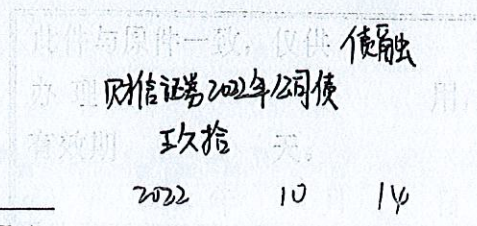 此件与原件一致，仅供 债融
办理 财信证券2022年公司债 用，
有效期 玖拾 天。
2022 10 14